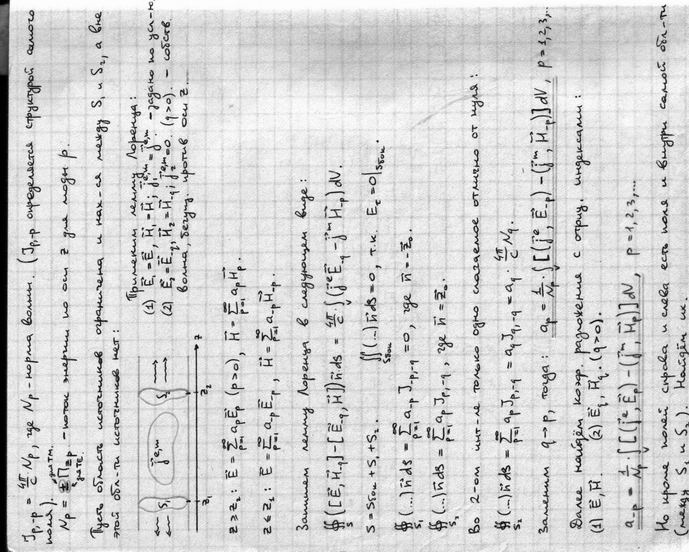 J_{p,-p} = \frac{4π}{c} N_p, где N_p - норма волны. (J_{p,-p} определяется структурой самого
поля).
N_p = ± П_{≥p} - поток энергии по оси z для моды p.
Пусть область источников ограничена и нах-ся между S_1 и S_2, а вне
этой обл-ти источников нет:
Применим лемму Лоренца:
(1) \vec{E}_1 = \vec{E}, \vec{H}_1 = \vec{H}; \vec{j}_1^{e,m} = \vec{j}^{e,m} - задано по усл-ю.
(2) \vec{E}_2 = \vec{E}_{-q}, \vec{H}_2 = \vec{H}_{-q}; \vec{j}_2^{e,m} = 0. (q>0). - собств.
волна, бегущ. против оси z.
S_1 \vec{j}^{e,m} S_2 z
z_1 z_2
z ≥ z_2: \vec{E} = \sum_{p=1}^{∞} a_p \vec{E}_p (p>0), \vec{H} = \sum_{p=1}^{∞} a_p \vec{H}_p.
z ≤ z_1: \vec{E} = \sum_{p=1}^{∞} a_{-p} \vec{E}_{-p}, \vec{H} = \sum_{p=1}^{∞} a_{-p} \vec{H}_{-p}.
Запишем лемму Лоренца в следующем виде:
\oiint_S ([\vec{E}, \vec{H}_{-q}] - [\vec{E}_{-q}, \vec{H}]) \vec{n} dS = \frac{4π}{c} ∫ (\vec{j}^e \vec{E}_{-q} - \vec{j}^m \vec{H}_{-q}) dV.
S = S_{бок} + S_1 + S_2. \iint_{S_{бок}} (...) \vec{n} dS = 0, т.к. E_τ = 0|_{S_{бок}}.
\oiint_{S_1} (...) \vec{n} dS = \sum_{p=1}^{∞} a_{-p} J_{-p,-q} = 0, где \vec{n} = -\vec{z}_0.
\oiint_{S_2} (...) \vec{n} dS = \sum_{p=1}^{∞} a_p J_{p,-q}, где \vec{n} = \vec{z}_0.
Во 2-ом инт-ле только одно слагаемое отлично от нуля:
\oiint_{S_2} (...) \vec{n} dS = \sum_{p=1}^{∞} a_p J_{p,-q} = a_q J_{q,-q} = a_q · \frac{4π}{c} N_q.
Заменим q→p, тогда: a_p = \frac{1}{N_p} ∫ [(\vec{j}^e, \vec{E}_{-p}) - (\vec{j}^m, \vec{H}_{-p})] dV, p = 1,2,3,...
Далее найдём коэф. разложения с отриц. индексами:
(1) \vec{E}, \vec{H}. (2) \vec{E}_q, \vec{H}_q. (q>0).
a_{-p} = \frac{1}{N_p} ∫ [(\vec{j}^e, \vec{E}_p) - (\vec{j}^m, \vec{H}_p)] dV, p = 1,2,3,...
Но кроме полей справа и слева есть поля и внутри самой обл-ти
(между S_1 и S_2). Найдём их.